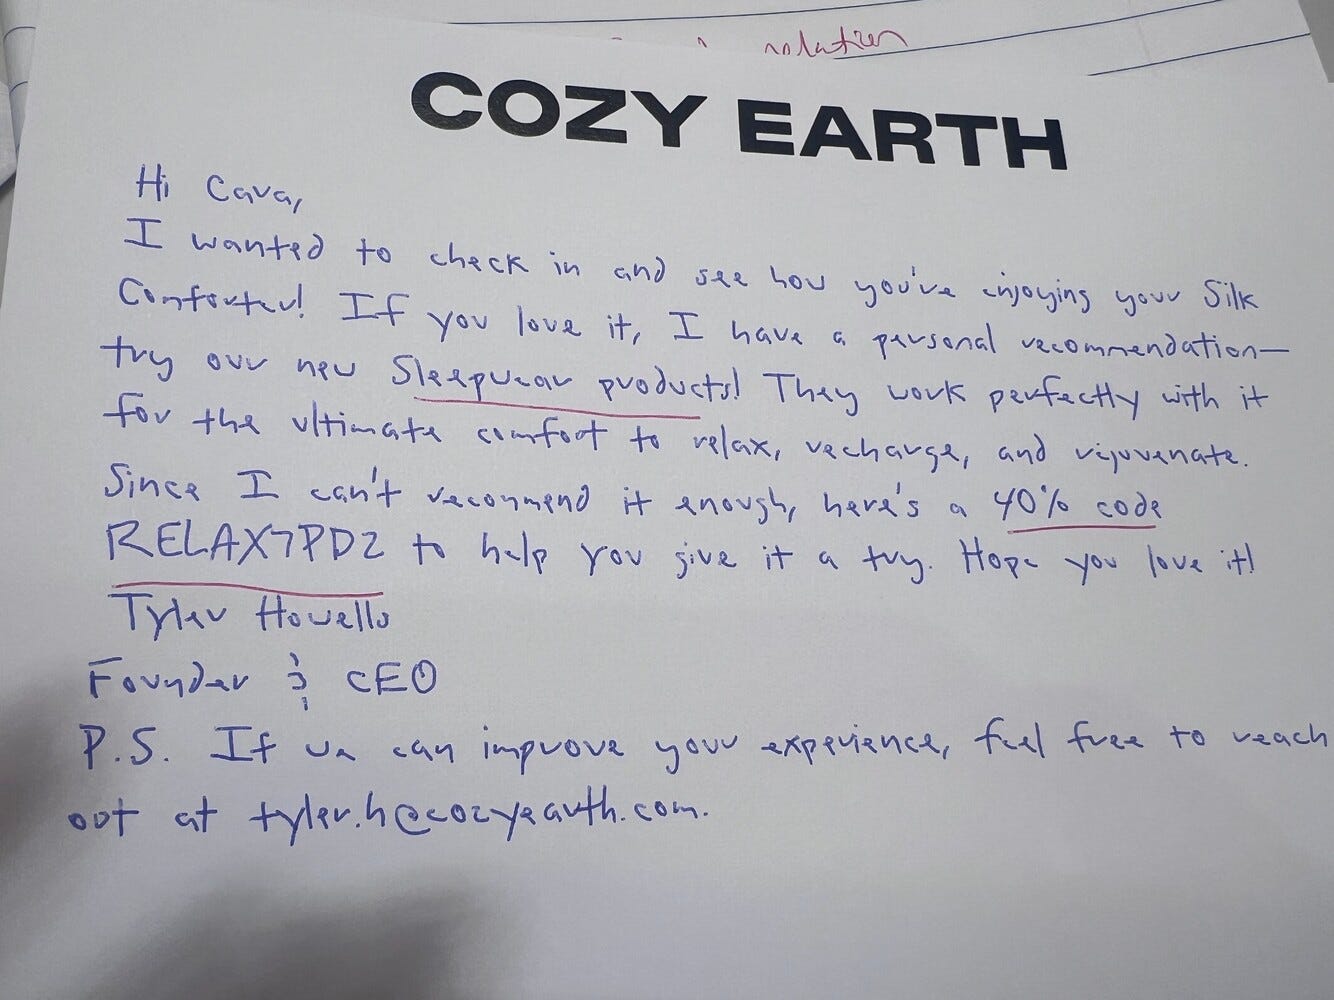 nolation
COZY EARTH
Hi Cava,
I wanted to check in and see how you've enjoying your Silk
Comforter! If you love it, I have a personal recommendation—
try our new Sleepwear products! They work perfectly with it
for the ultimate comfort to relax, recharge, and rejuvenate.
Since I can't recommend it enough, here's a 40% code
RELAX7PD2 to help you give it a try. Hope you love it!
Tyler Howells
Founder & CEO
P.S. If we can improve your experience, feel free to reach
out at tyler.h@cozyearth.com.